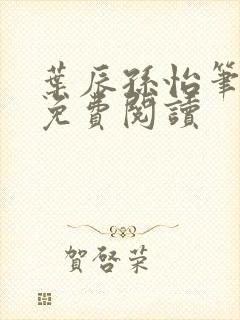 葉辰孫怡筆
免費閱讀
賀啓榮